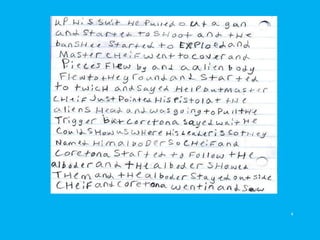 UP HiS Suit He Pulled out a gan
and Started to Shoot and tHe
banSHee Started to EXPloed and
Master CHeif went to cover and
Pieces Flew by and a alien body
Flew to they ground and Started
to twich and Sayed HelP but Master
CHeif Just Pointed HiS PiStol at tHe
alienS Head and was going to Pull tHe
Trigger but Coretona Sayed wait He
Could SHow uS wHere HiS leader iS So tHey
Named Him alboder So CHeif and
Coretona Started to Follow tHe
alboder and tHe alboder SHowed
THem and tHe alboder Stayed outside
CHeif and Coretona went in and Saw